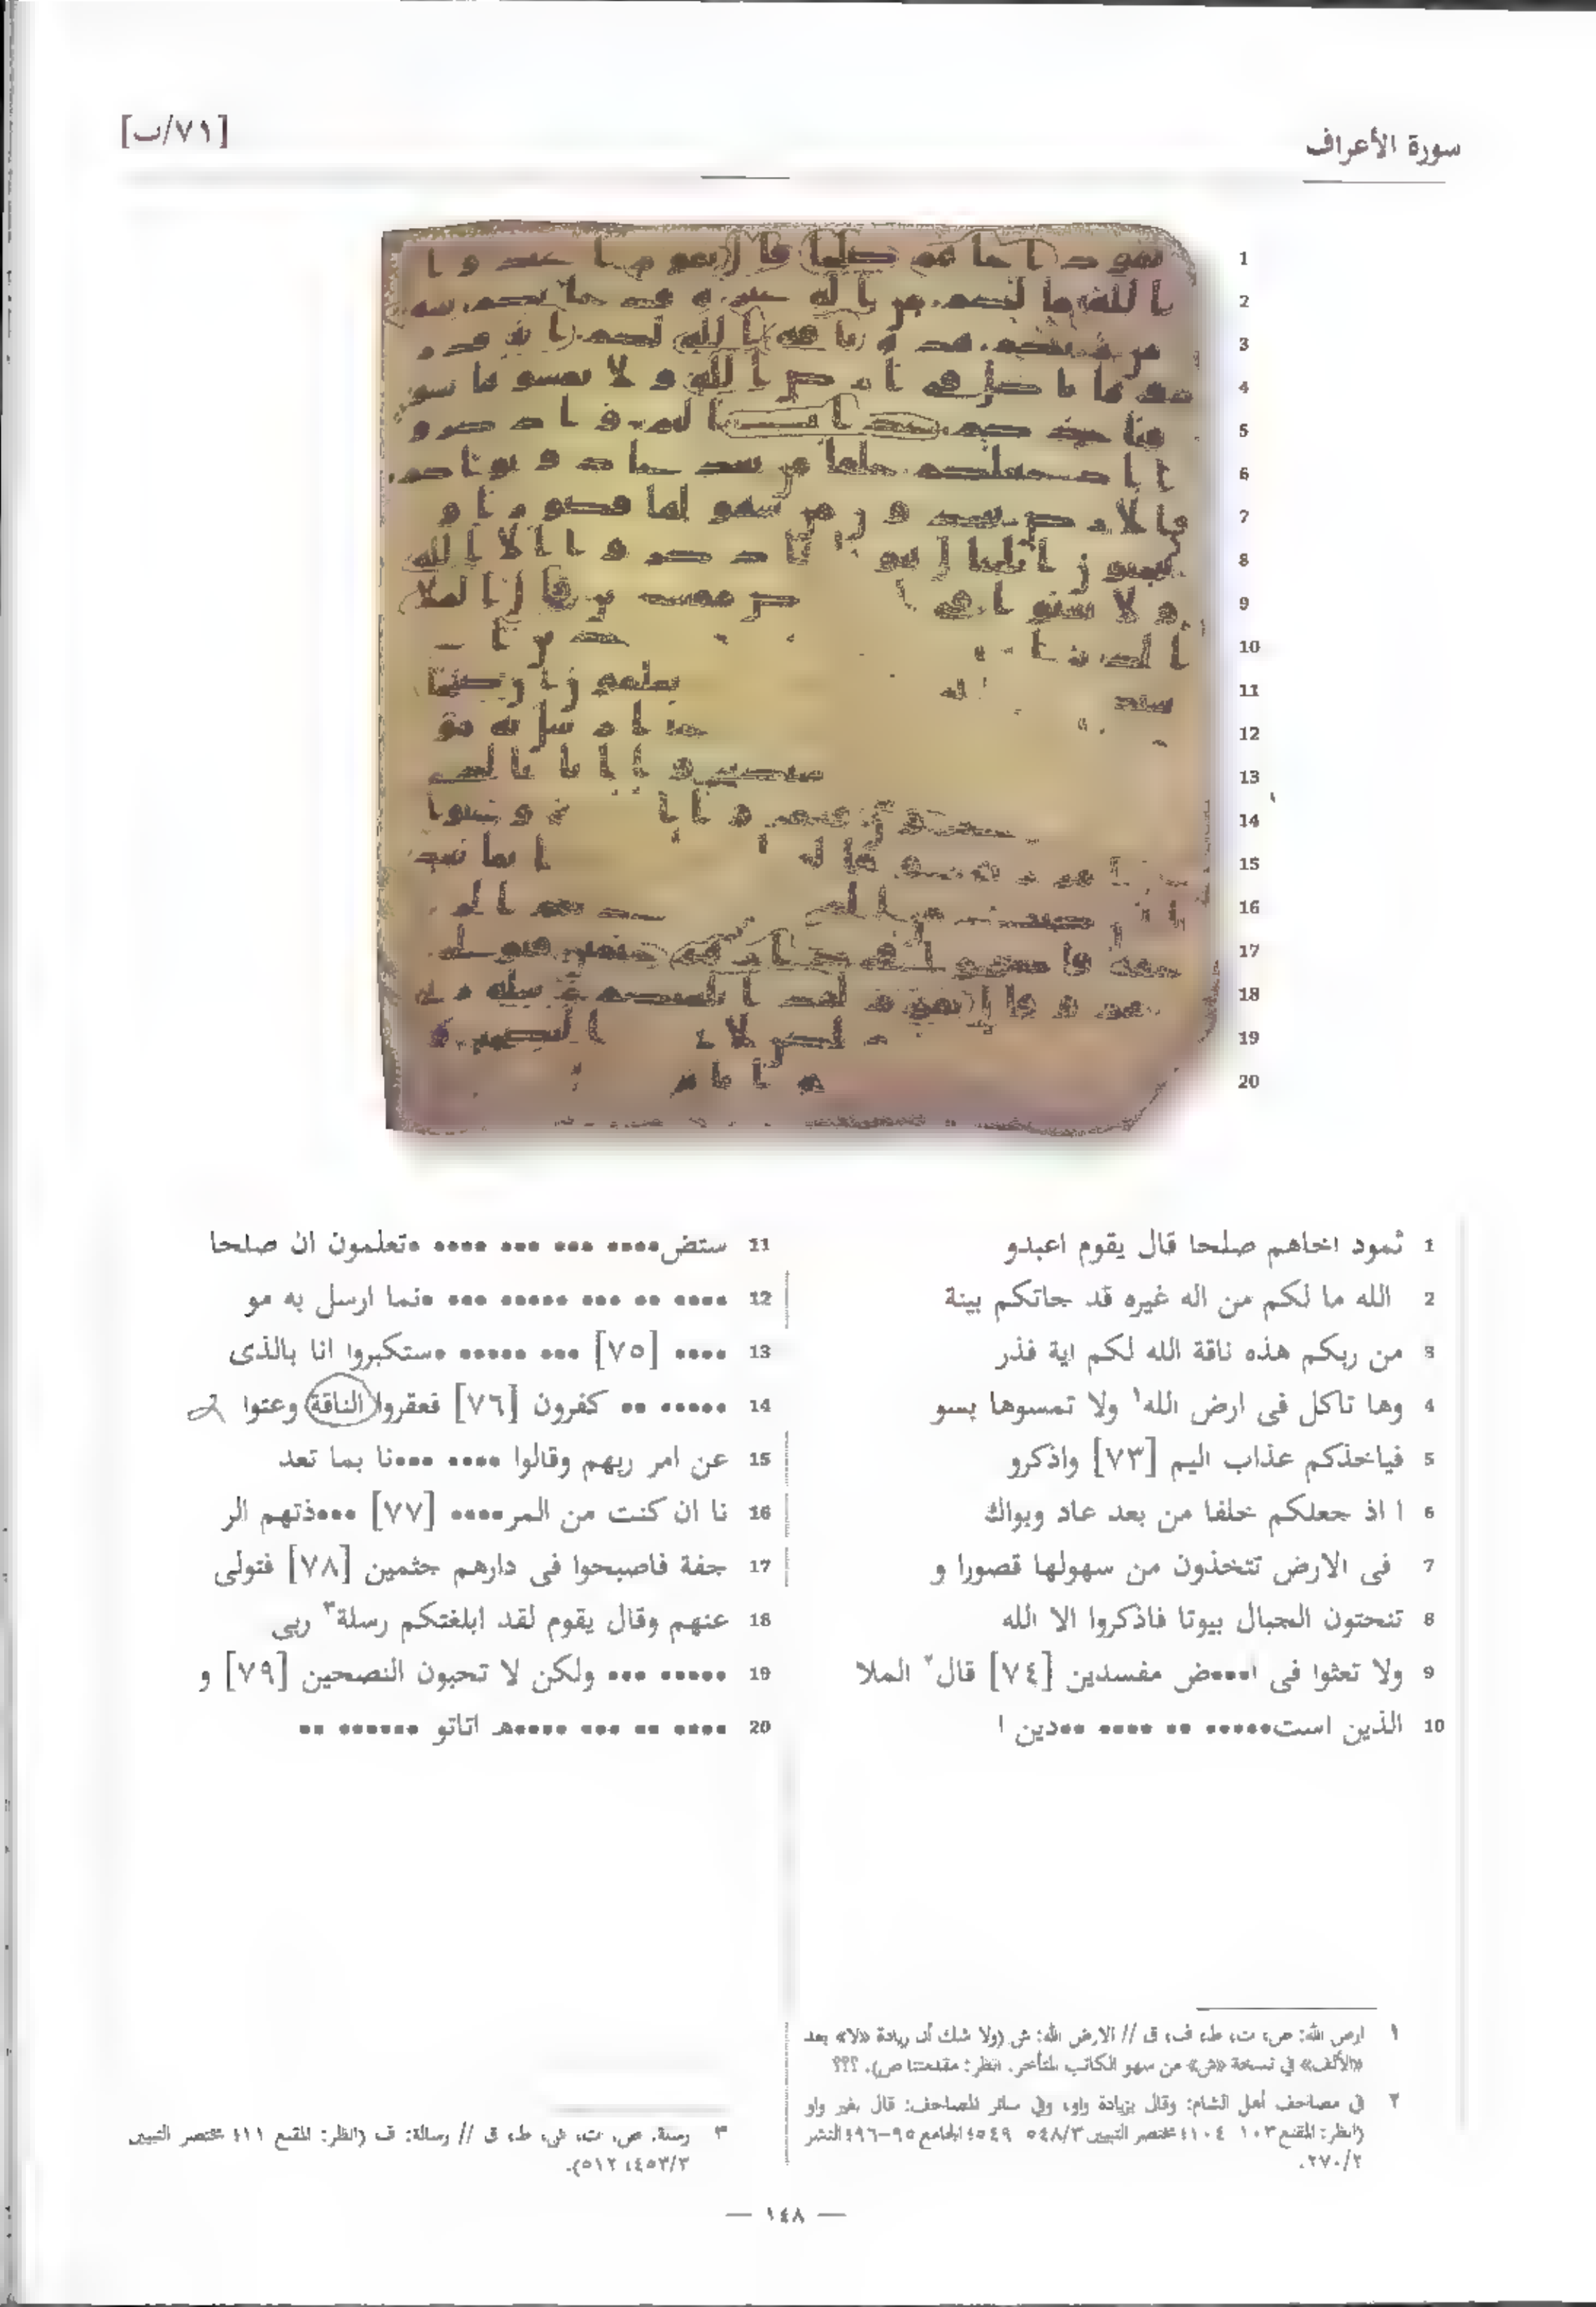 سورة الأعراف
[٧١/ب]
1 ثمود اخاهم صلحا قال يقوم اعبدو
2 الله ما لكم من اله غيره قد جاتكم بينة
3 من ربكم هذه ناقة الله لكم اية فذر
4 وها تاكل فى ارض الله١ ولا تمسوها بسو
5 فياخذكم عذاب اليم [٧٣] واذكرو
6 ا اذ جعلكم خلفا من بعد عاد وبواك
7 فى الارض تتخذون من سهولها قصورا و
8 تنحتون الجبال بيوتا فاذكروا الا الله
9 ولا تعثوا فى ا•••ض مفسدين [٧٤] قال٢ الملا
10 الذين است••••• •• •••• ••دين ا
11 ستض•••• ••• ••• •••• •تعلمون ان صلحا
12 •••• •• ••• ••••• ••• •نما ارسل به مو
13 •••• [٧٥] ••• ••••• •ستكبروا انا بالذى
14 ••••• •• كفرون [٧٦] فعقروا الناقة وعتوا
15 عن امر ربهم وقالوا •••• •••نا بما تعد
16 نا ان كنت من المر•••• [٧٧] •••ذتهم الر
17 جفة فاصبحوا فى دارهم جثمين [٧٨] فتولى
18 عنهم وقال يقوم لقد ابلغتكم رسلة٣ ربى
19 ••••• ••• ولكن لا تحبون النصحين [٧٩] و
20 •••• •• ••• ••••هـ اتاتو •••••• ••
١ ارض الله: ص، ت، ط، ف، ق // الارض الله: ش (ولا شك أن زيادة «لا» بعد
«الألف» في نسخة «ش» من سهو الكاتب المتأخر. انظر: مقدمتنا ص). ؟؟؟
٢ في مصاحف أهل الشام: وقال بزيادة واو، وفي سائر المصاحف: قال بغير واو
(انظر: المقنع ١٠٣، ١٠٤؛ مختصر التبيين ٥٤٨/٣، ٥٤٩؛ الجامع ٩٥-٩٦؛ النشر
٢٧٠/٢.
٣ رسلة: ص، ت، ش، ط، ق // رسالة: ف (انظر: المقنع ١١؛ مختصر التبيين
٤٥٣/٣، ٥١٢).
— ١٤٨ —